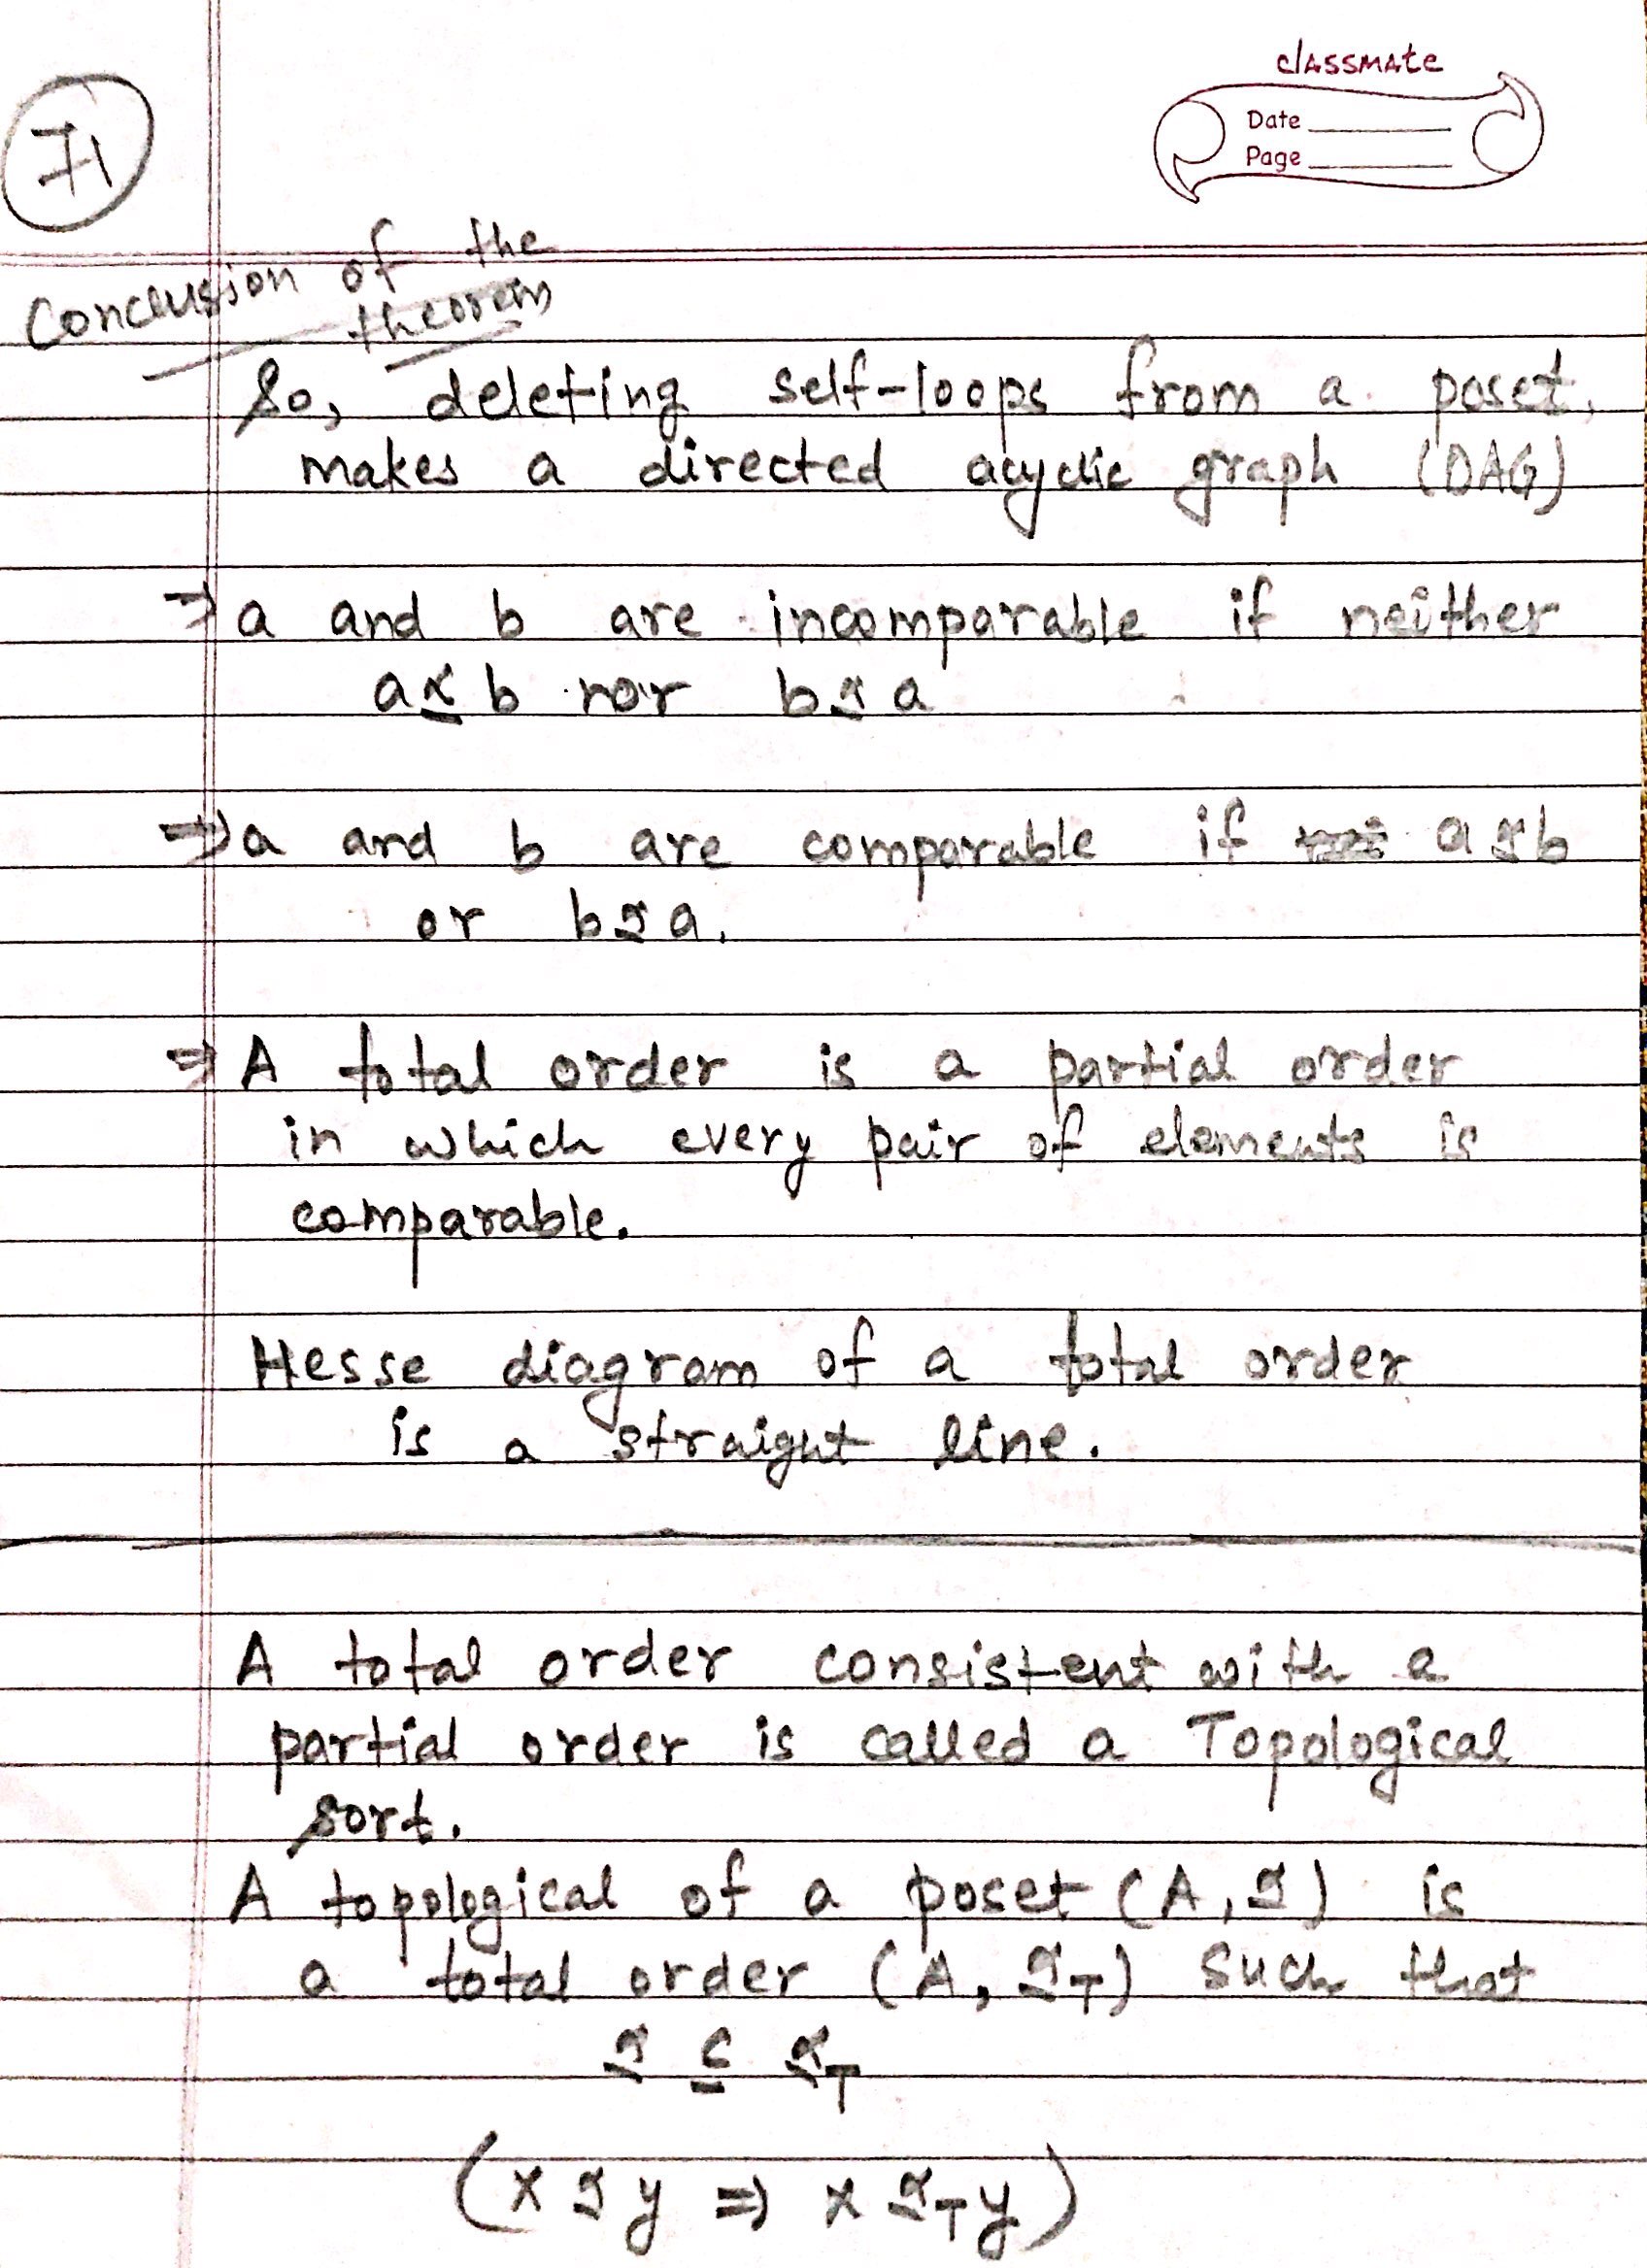 classmate
Date
Page
71
Conclusion of the
theorem
So, deleting self-loops from a poset,
makes a directed acyclic graph (DAG)
⇒ a and b are incomparable if neither
a ⪯ b nor b ⪯ a
⇒ a and b are comparable if a ⪯ b
or b ⪯ a.
⇒ A total order is a partial order
in which every pair of elements is
comparable.
Hesse diagram of a total order
is a straight line.
A total order consistent with a
partial order is called a Topological
sort.
A topological of a poset (A, ⪯) is
a total order (A, ⪯_T) such that
⪯ ⊆ ⪯_T
(x ⪯ y ⇒ x ⪯_T y)